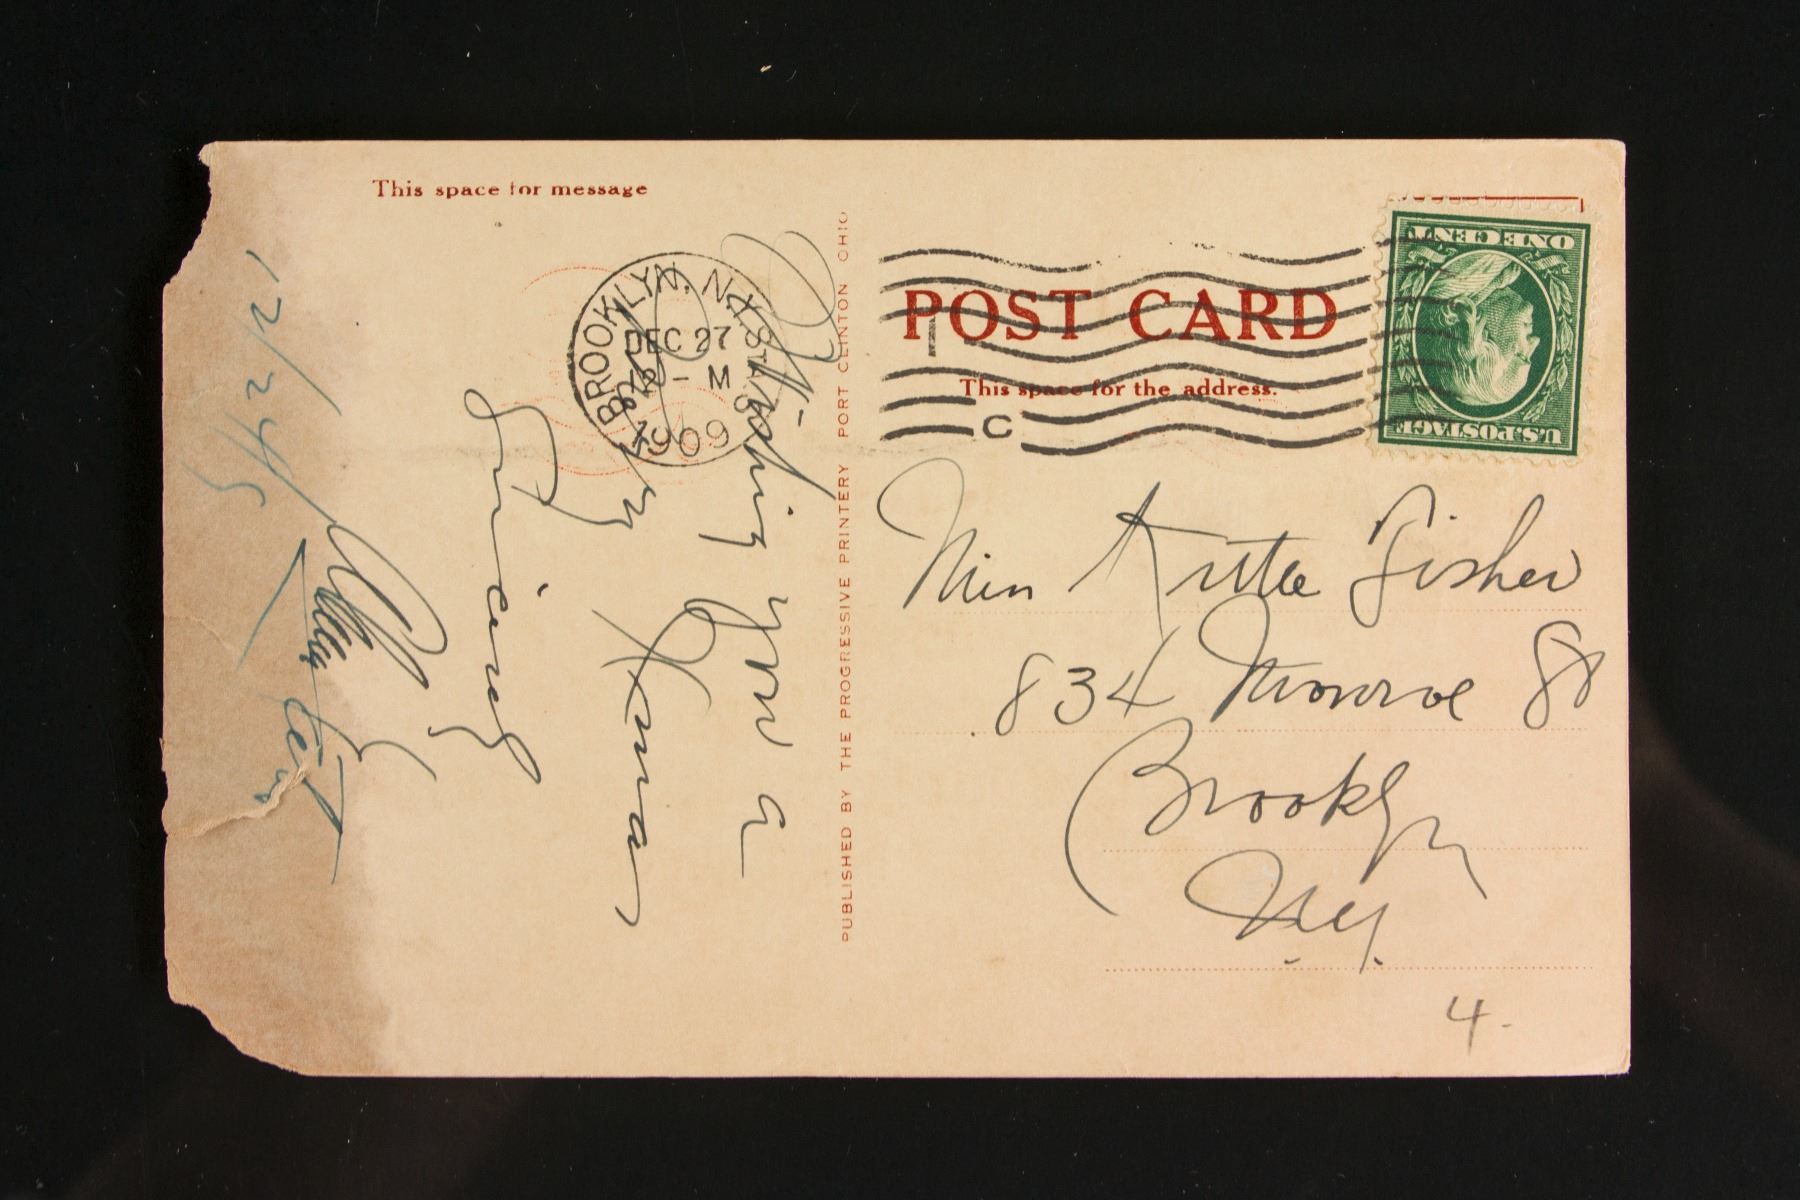 This space for message
POST CARD
This space for the address.
BROOKLYN, N.Y. STA.
DEC 27
- M
1909
C
ONE CENT
U.S. POSTAGE
PUBLISHED BY THE PROGRESSIVE PRINTERY PORT CLINTON OHIO
Wishing you a
Merry Xmas
Sincerely
12/24/
Miss Kittie Fisher
834 Monroe St
Brooklyn
N.Y.
4.